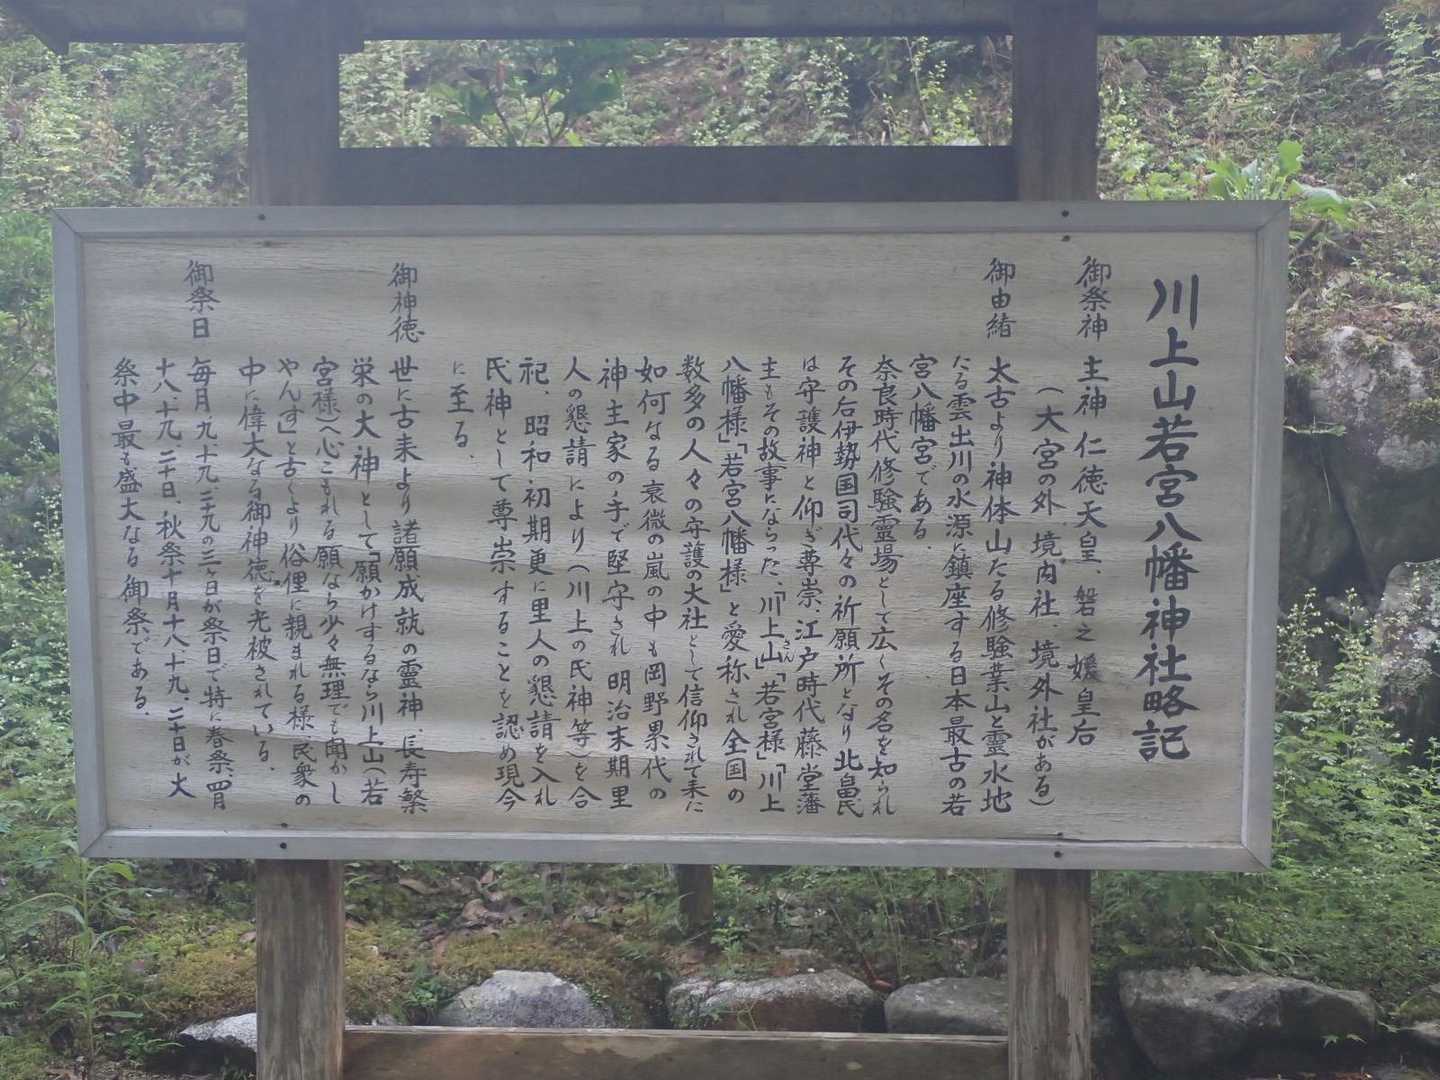 川上山若宮八幡神社略記
御祭神 主神 仁徳天皇、磐之媛皇后
（大宮の外、境内社、境外社がある）
御由緒 太古より神体山たる修験業山と霊水地
たる雲出川の水源に鎮座する日本最古の若
宮八幡宮である。
奈良時代修験霊場として広くその名を知られ
その后伊勢国司代々の祈願所となり北畠氏
は守護神と仰ぎ尊崇、江戸時代藤堂藩
主もその故事にならった、「川上山」「若宮様」「川上
さん
八幡様」「若宮八幡様」と愛称され全国の
数多の人々の守護の大社として信仰されて来た
如何なる衰微の嵐の中も岡野累代の
神主家の手で堅守され明治末期里
人の懇請により（川上の氏神等）を合
祀、昭和初期更に里人の懇請を入れ
氏神として尊崇することを認め現今
に至る。
御神徳 世に古来より諸願成就の霊神、長寿繁
栄の大神として「願かけするなら川上山（若
宮様）へ心こもれる願なら少々無理でも聞かし
やんす」と古くより俗俚に親まれる様民衆の
中に偉大なる御神徳を光被されている。
御祭日 毎月、九、十九、二十九の三ヶ日が祭日で特に春祭、四月
十八、十九、二十日、秋祭十月十八、十九、二十日が大
祭中最も盛大なる御祭である。